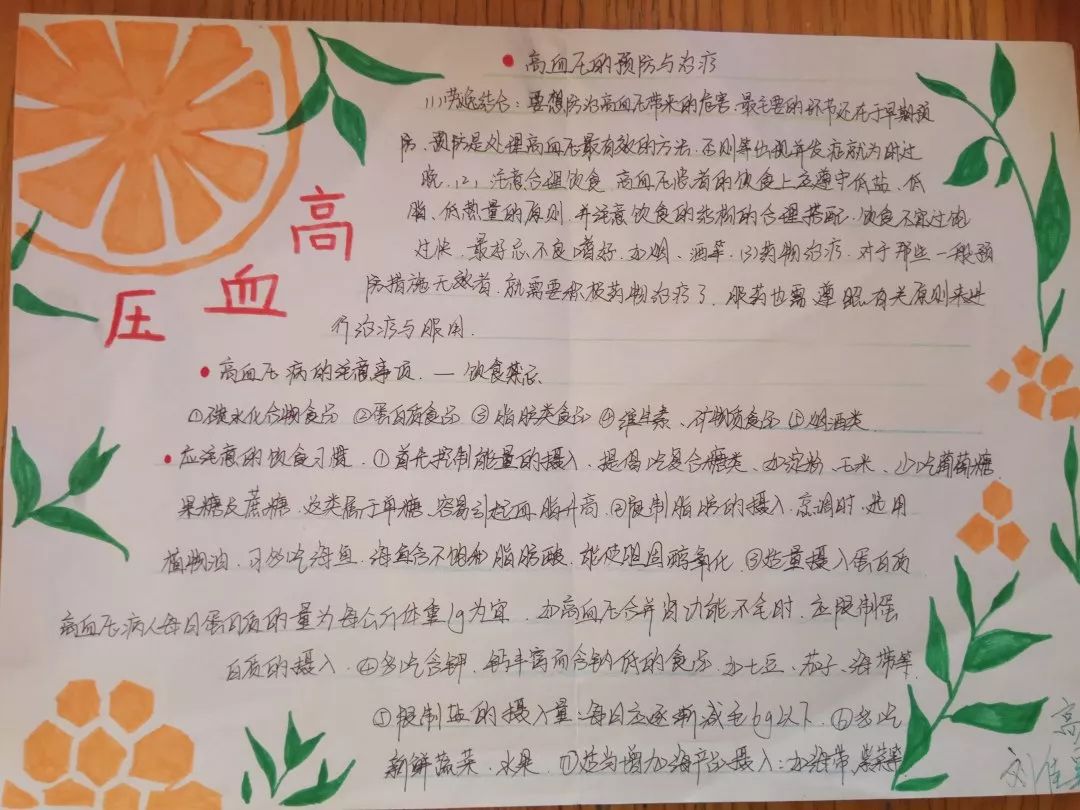 高血压
● 高血压的预防与治疗
(1)劳逸结合：要想防治高血压带来的危害，最主要的环节还在于早期预
防，预防是处理高血压最有效的方法，否则等出现并发症就为时过
晚．(2)注意合理饮食，高血压患者的饮食上应遵守低盐、低
脂、低热量的原则，并注意饮食的结构的合理搭配，饮食不宜过饱
过快，最好忌不良嗜好，如烟、酒等．(3)药物治疗，对于那些一般预
防措施无效者，就需要积极药物治疗了，服药也需遵照有关原则来进
行治疗与服用．
● 高血压病的注意事项．— 饮食禁忌
①碳水化合物食品 ②蛋白质食品 ③脂肪类食品 ④维生素、矿物质食品 ⑤烟酒类
● 应注意的饮食习惯．①首先控制能量的摄入，提倡吃复合糖类、如淀粉、玉米、少吃葡萄糖、
果糖及蔗糖，这类属于单糖，容易引起血脂升高．②限制脂肪的摄入．烹调时，选用
植物油，可多吃海鱼，海鱼含不饱和脂肪酸，能使胆固醇氧化．③适量摄入蛋白质
高血压病人每日蛋白质的量为每公斤体重1g为宜．如高血压合并肾功能不全时，应限制蛋
白质的摄入．④多吃含钾、钙丰富而含钠低的食品，如土豆、茄子、海带等．
⑤限制盐的摄入量：每日应逐渐减至6g以下．⑥多吃
新鲜蔬菜、水果．⑦适当增加海产品摄入：如海带，紫菜等
高
刘佳